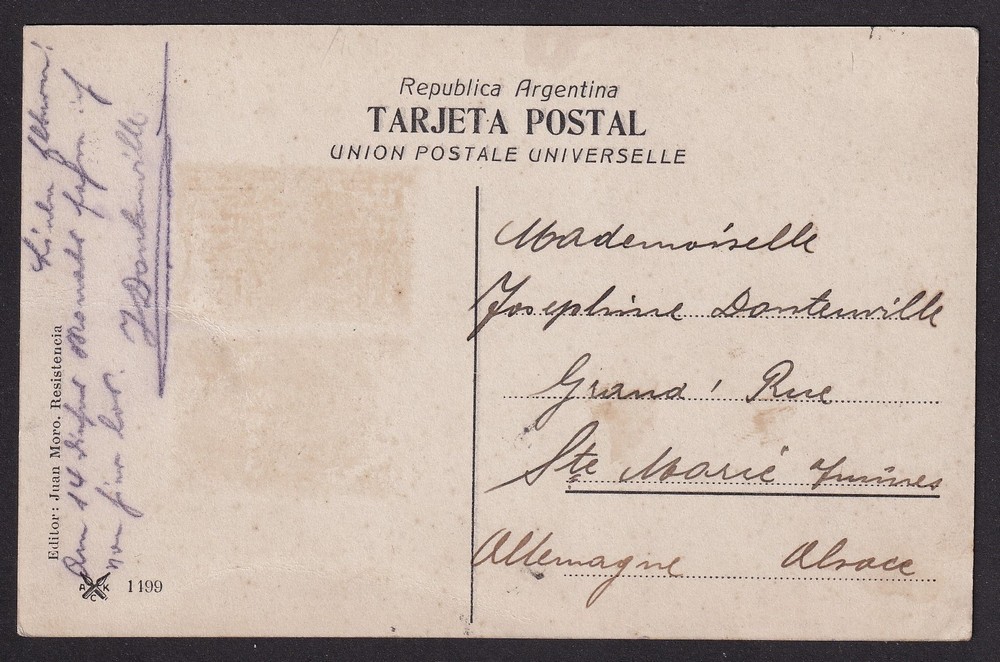 Republica Argentina
TARJETA POSTAL
UNION POSTALE UNIVERSELLE
Mademoiselle
Josephine Dontenville
Grand' Rue
Ste Marie
Allemagne Alsace
Am 14 Monats
J Dontenville
Editor: Juan Moro. Resistencia
A K C
1199